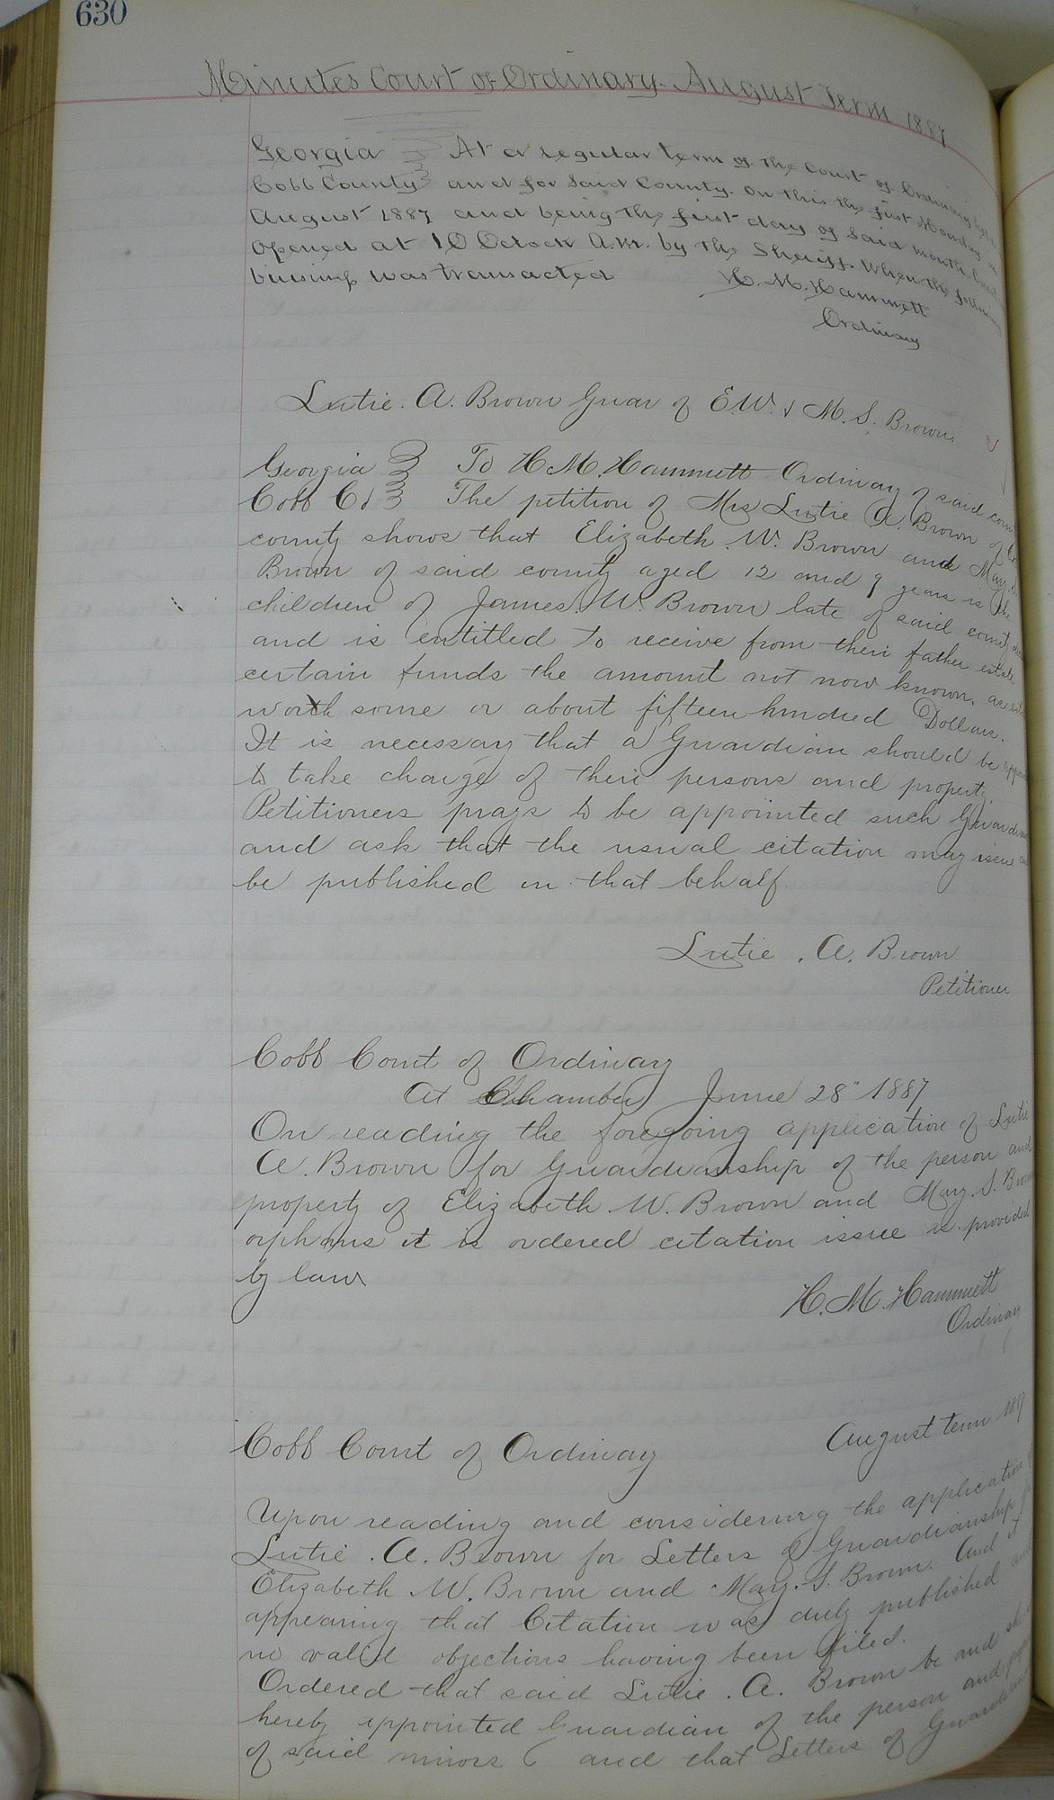 630
Minutes Court of Ordinary. August Term 1887
Georgia } At a regular term of the Court of Ordinary
Cobb County } and for said County. On this the first Monday in
August 1887 and being the first day of said month. Court
Opened at 10 Oclock A.M. by the Sheriff. When the following
buisness was transacted H. M. Hammett
Ordinary
Lutie. A. Brown Guar of E.W. & M. S. Brown
Georgia } To H M. Hammett Ordinary of said county
Cobb Co } The petition of Mrs Lutie A. Brown of
county shows that Elizabeth. W. Brown and Mary
Brown of said county aged 12 and 9 years is the
children of James. W. Brown late of said county
and is entitled to receive from their father estate
certain funds the amount not now known,
worth some or about fifteen hundred Dollars.
It is necessary that a Guardian should be
to take charge of their persons and property.
Petitioners prays to be appointed such Guardian
and ask that the usual citation may issue
be published in that behalf.
Lutie. A. Brown
Petitioner
Cobb Court of Ordinary
At Chambers June 28" 1887
On reading the foregoing application of Lutie
A. Brown for Guardianship of the person and
property of Elizabeth W. Brown and Mary. S. Brown
orphans it is ordered citation issue as provided
by law
H. M. Hammett
Ordinary
Cobb Court of Ordinary August term 1887
Upon reading and considering the application
Lutie. A. Brown for Letters of Guardianship
Elizabeth W. Brown and Mary. S. Brown. And it
appearing that Citation was duly published and
no valid objections having been filed.
Ordered that said Lutie. A. Brown be and she
hereby appointed Guardian of the person and
of said minors and that Letters of